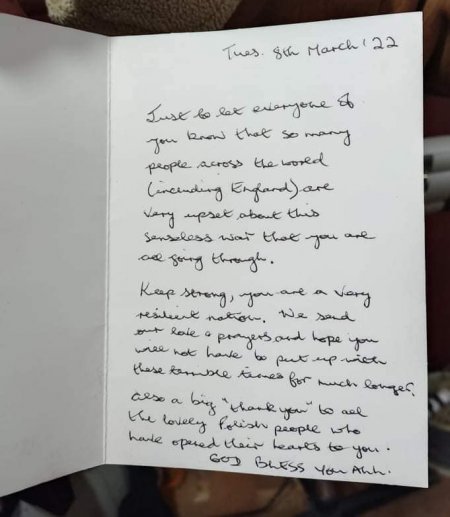 Tues. 8th March '22
Just to let everyone of
you know that so many
people across the world
(including England) are
very upset about this
senseless war that you are
all going through.
Keep strong, you are a very
resilient nation. We send
our love & prayers and hope you
will not have to put up with
these terrible times for much longer.
Also a big "thank you" to all
the lovely Polish people who
have opened their hearts to you.
GOD BLESS you ALL.